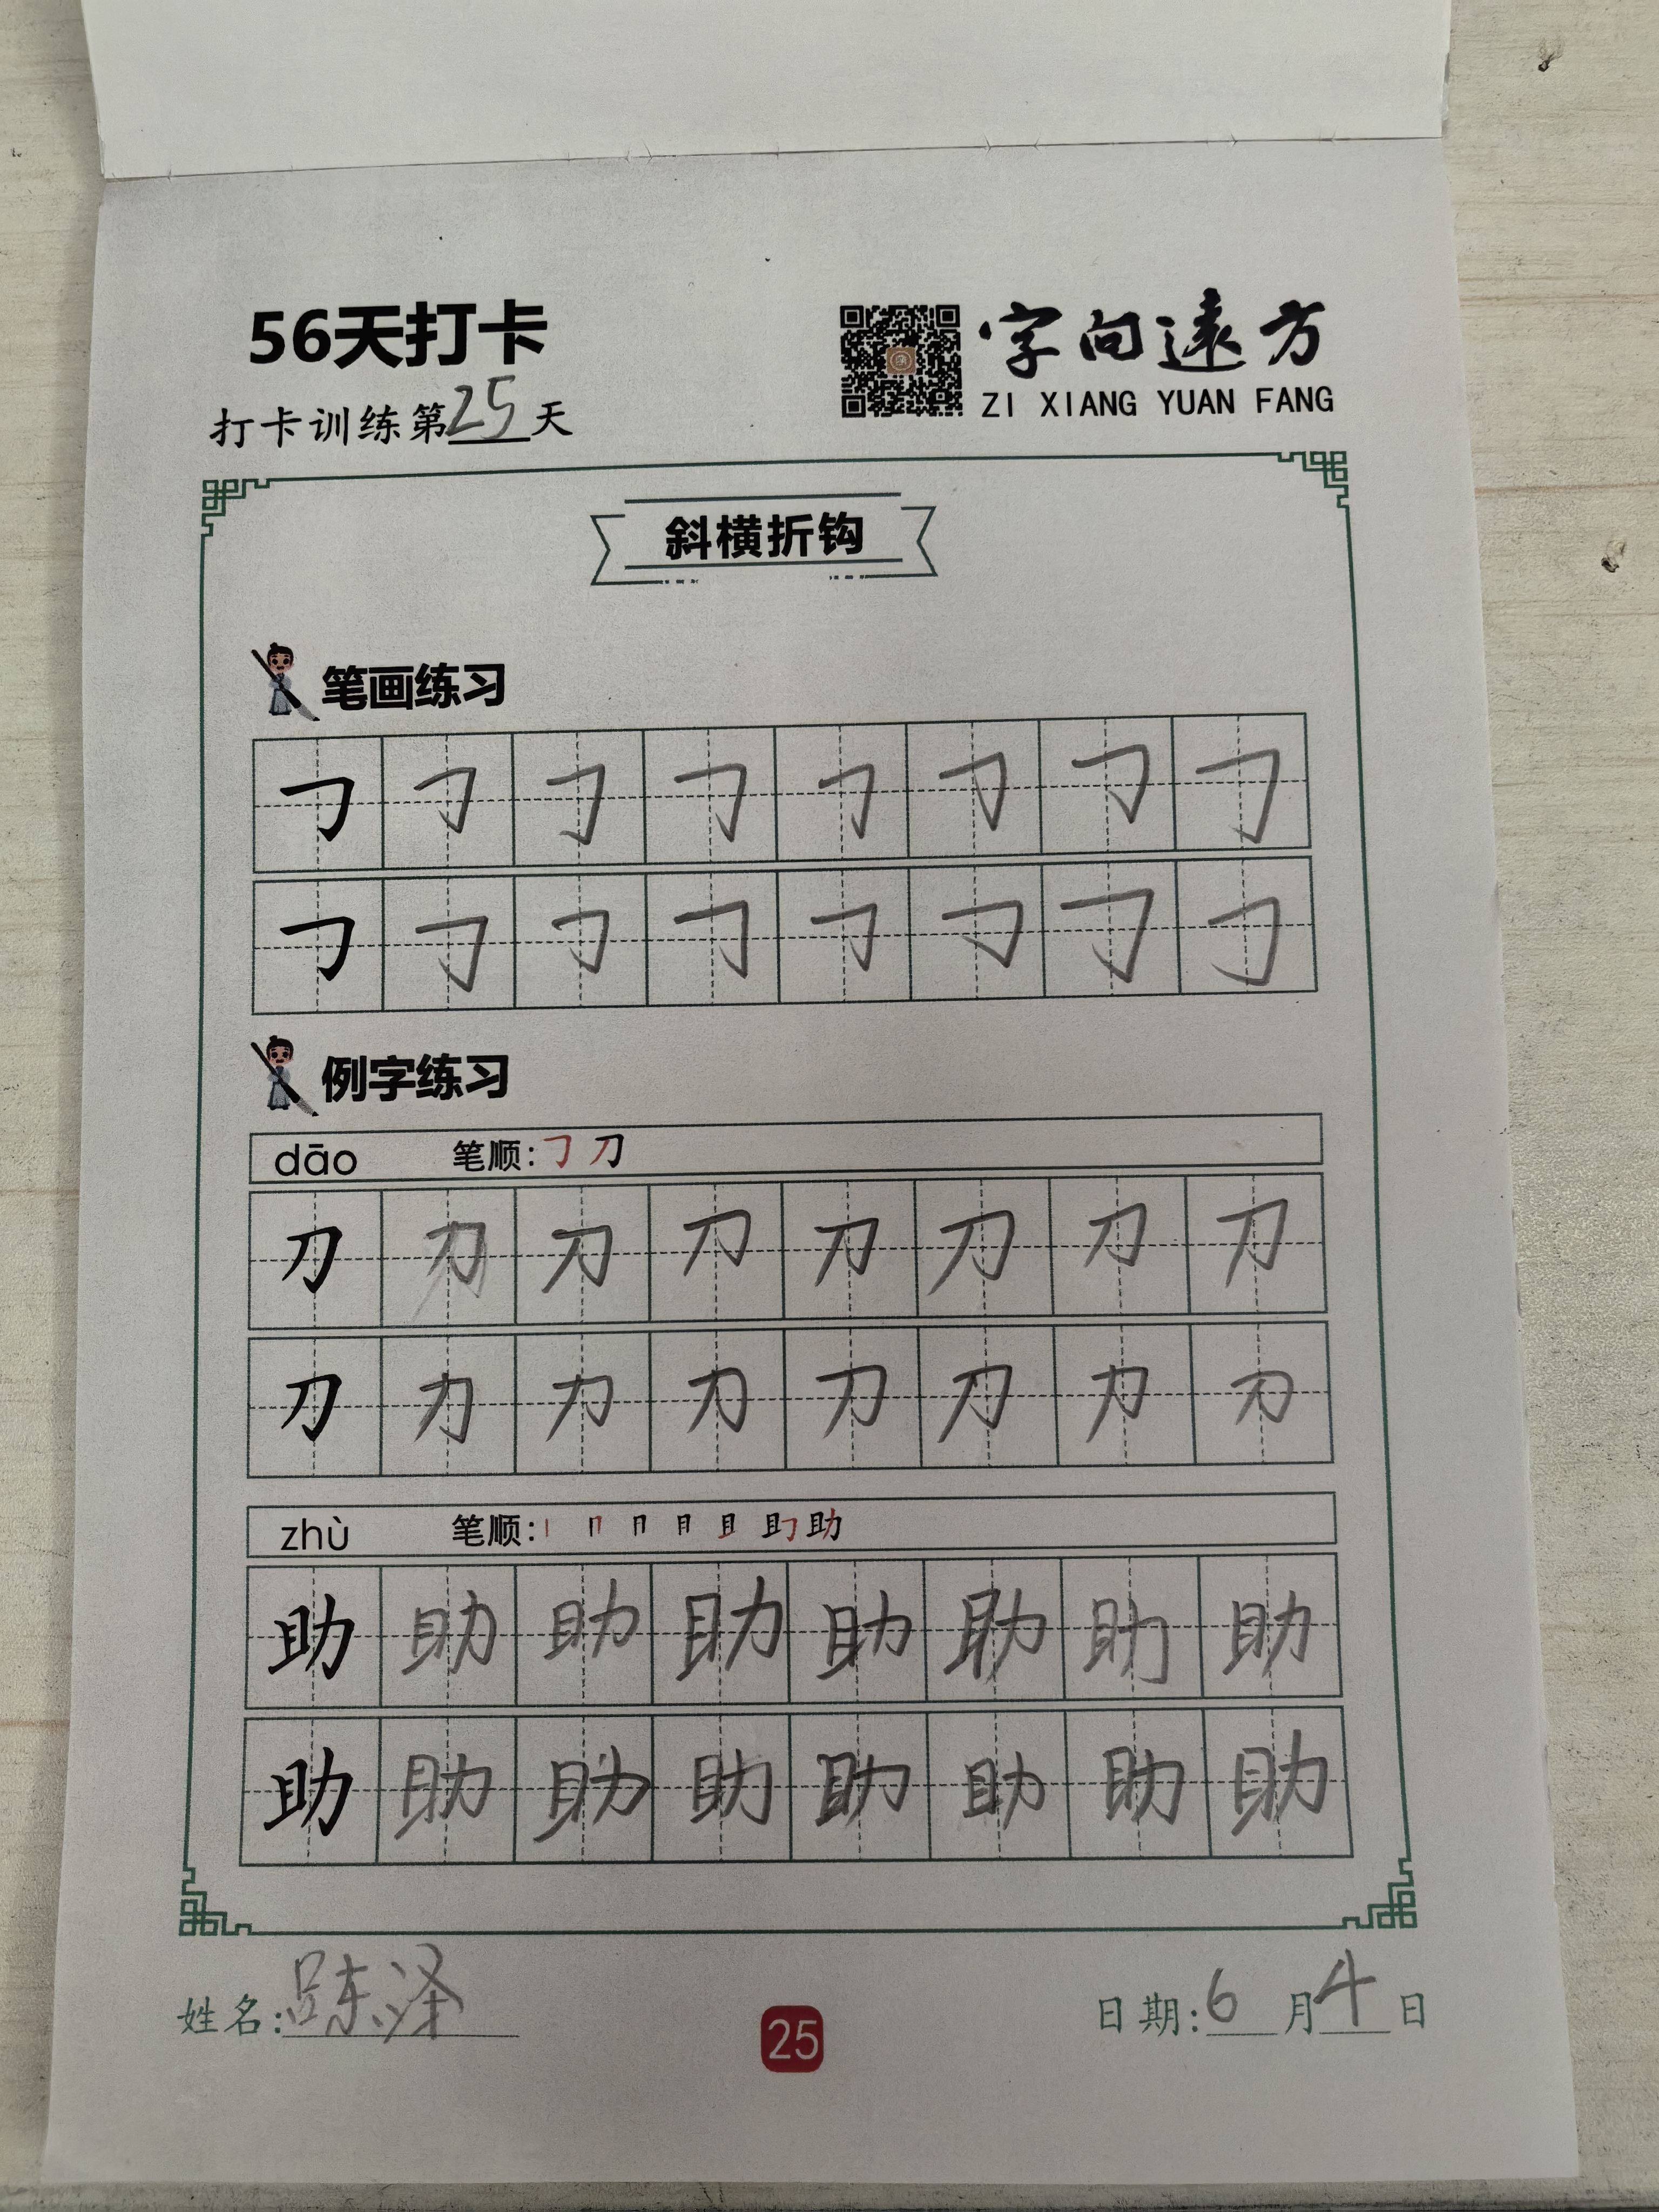 56天打卡
字向遠方
ZI XIANG YUAN FANG
打卡训练第25天
斜横折钩
笔画练习
例字练习
dāo 笔顺: 刀
刀 刀 刀 刀 刀 刀 刀 刀
刀 刀 刀 刀 刀 刀 刀 刀
zhù 笔顺: 助
助 助 助 助 助 助 助 助
助 助 助 助 助 助 助 助
姓名: 泽
25
日期:6月4日